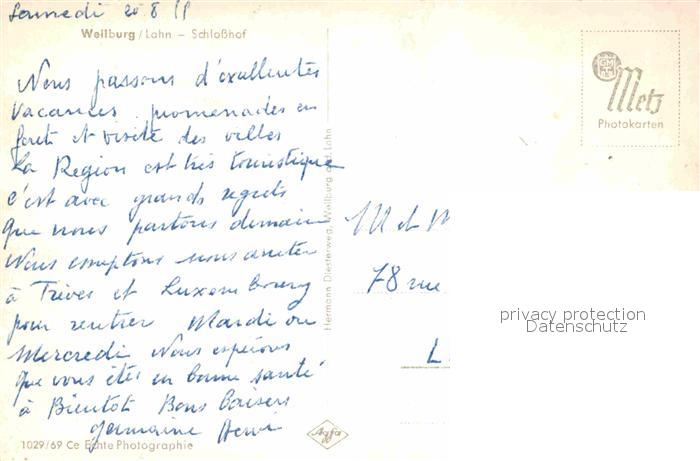 Samedi 20 8
Weilburg / Lahn – Schloßhof
Nous passons d'excellentes
vacances promenades en
forêt et visite des villes
La Region est très touristique
c'est avec grands regrets
que nous partons demain
Nous comptons nous arreter
à Trèves et Luxembourg
pour rentrer Mardi ou
Mercredi Nous espérons
que vous êtes en bonne santé
à Bientôt Bons baisers
Germaine
1029/69 Ce Echte Photographie
Hermann Diesterweg, Weilburg a. d. Lahn
Agfa
Metz
Photokarten
M et M
78 rue
L
privacy protection
Datenschutz